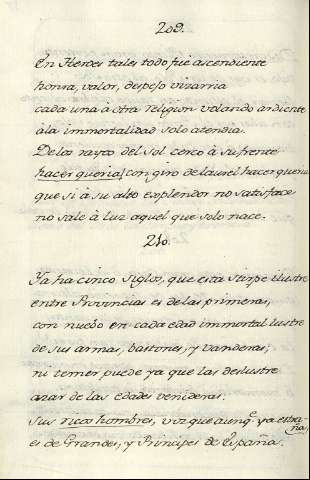 209.
En Heroes tales todo fue ascendiente
honra, valor, despejo vizarria
cada una à otra religion volando ardiente
àla immortalidad solo atendia.
Delos rayos del Sol cerco à su frente
hacer queria con giro de laurel hacer queria
que si à su alto explendor no satisface
no sale à luz aquel que solo nace.
210.
Ya ha cinco siglos, que esta stirpe ilustre
entre Provincias es delas primeras,
con nuebo en cada edad immortal lustre
de sus armas, bastones, y vanderas;
ni temer puede ya que las deslustre
azar de las edades venideras.
Sus ricos hombres, viz que aunq.e ya estraña,
es de Grandes, y Principes de España.